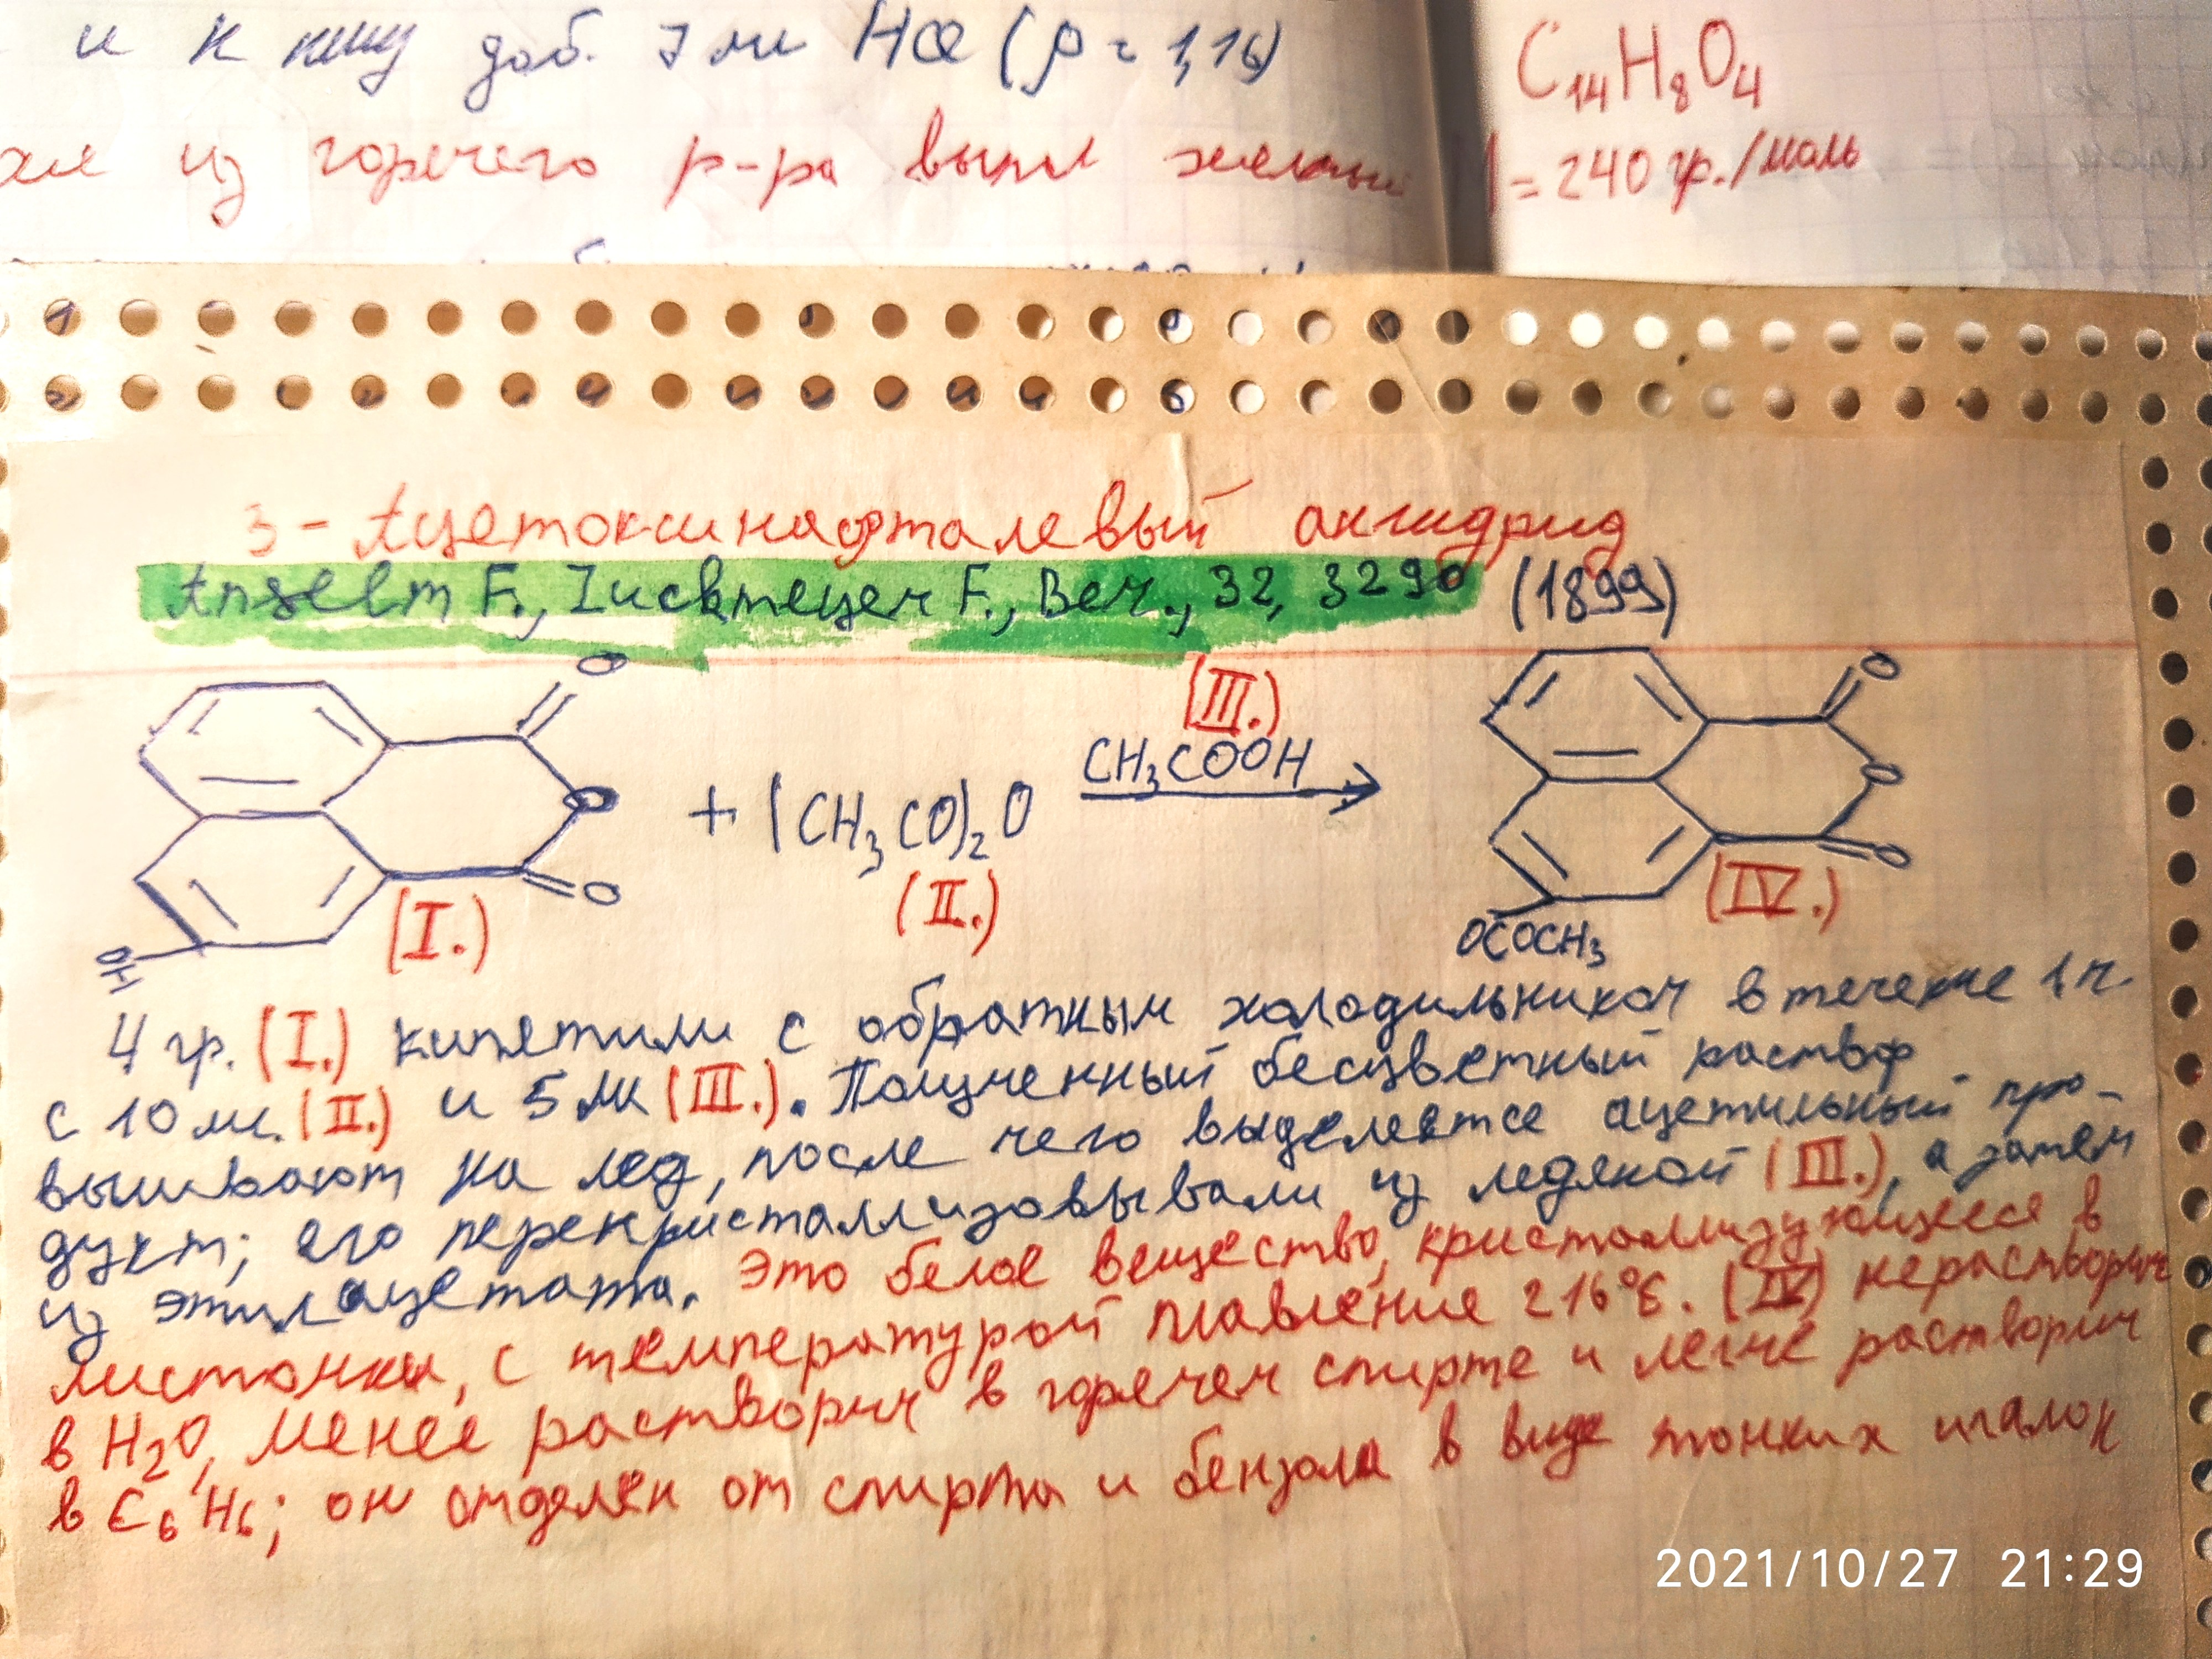 и к нему доб. 7 мл HCl (ρ = 1,16)
C₁₄H₈O₄
из горячего р-ра вып
= 240 гр./моль
3 - Ацетоксинафталевый ангидрид
Anselm F., Zuckmeyer F., Ber., 32, 3290 (1899)
O
O
O
HO
(I.)
+ (CH₃CO)₂O
(II.)
(III.)
CH₃COOH
O
O
O
OCOCH₃
(IV.)
4 гр. (I.) кипятили с обратным холодильником в течение 1 ч.
с 10 мл. (II.) и 5 мл (III.). Полученный бесцветный раствор
выливают на лед, после чего выделяется ацетильный про-
дукт; его перекристаллизовывали из ледяной (III.), а затем
из этилацетата. Это белое вещество, кристаллизующееся в
листочки, с температурой плавление 216°C. (IV) нерастворим
в H₂O, менее растворим в горячем спирте и легче растворим
в C₆H₆; он отделён от спирта и бензола в виде тонких иголок
2021/10/27 21:29